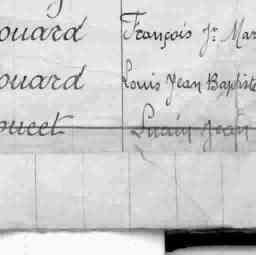 ouard François Jn Mar
ouard Louis Jean Baptiste
oucet Jean